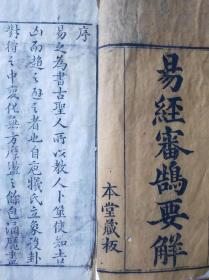 易經審鵠要解
本堂藏板
序
易之為書古聖人所以教人卜筮使知吉
凶而趨之避之者也自庖犧氏立象設卦
對待之中變化無方摩盪之餘自